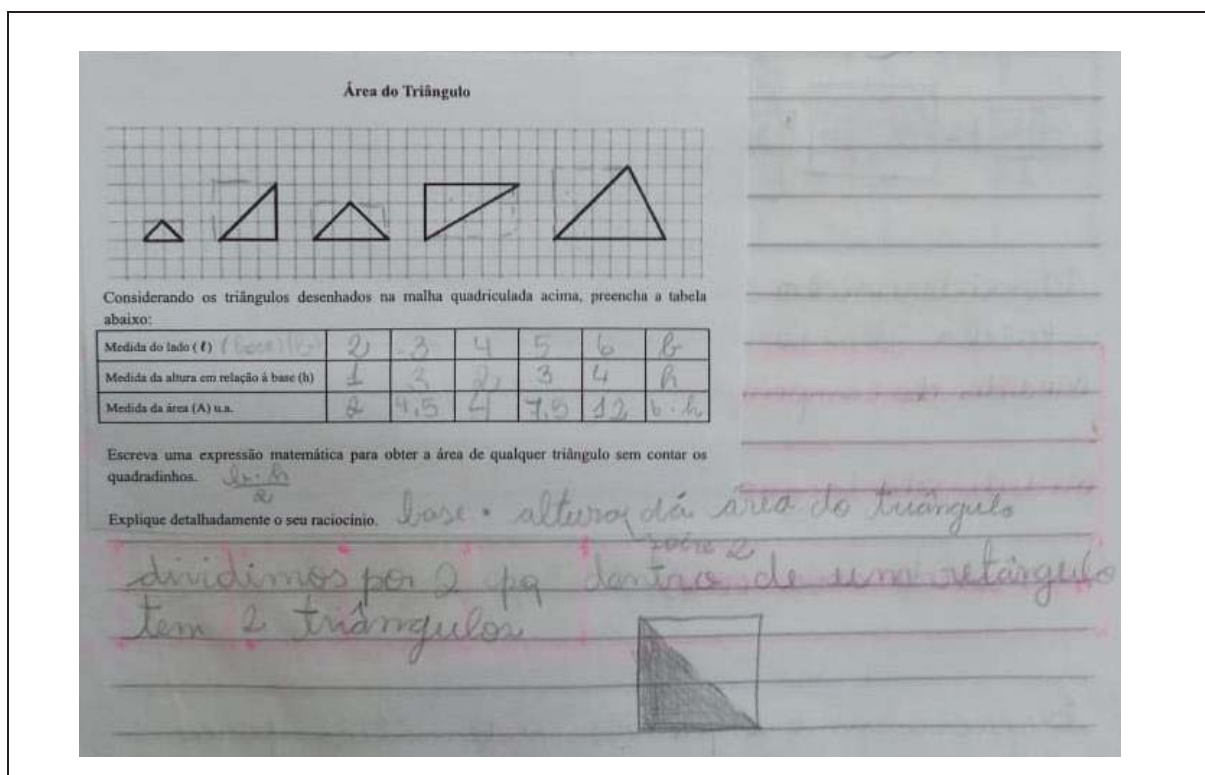 Área do Triângulo
Considerando os triângulos desenhados na malha quadriculada acima, preencha a tabela
abaixo:
Medida do lado (ℓ) (base)(b) 2 3 4 5 6 b
Medida da altura em relação à base (h) 1 3 2 3 4 h
Medida da área (A) u.a. 2 4,5 4 7,5 12 b·h
Escreva uma expressão matemática para obter a área de qualquer triângulo sem contar os
quadradinhos. b·h/2
Explique detalhadamente o seu raciocínio. base · altura dá área do triângulo
sobre 2
dividimos por 2 pq dentro de um retângulo
tem 2 triângulos